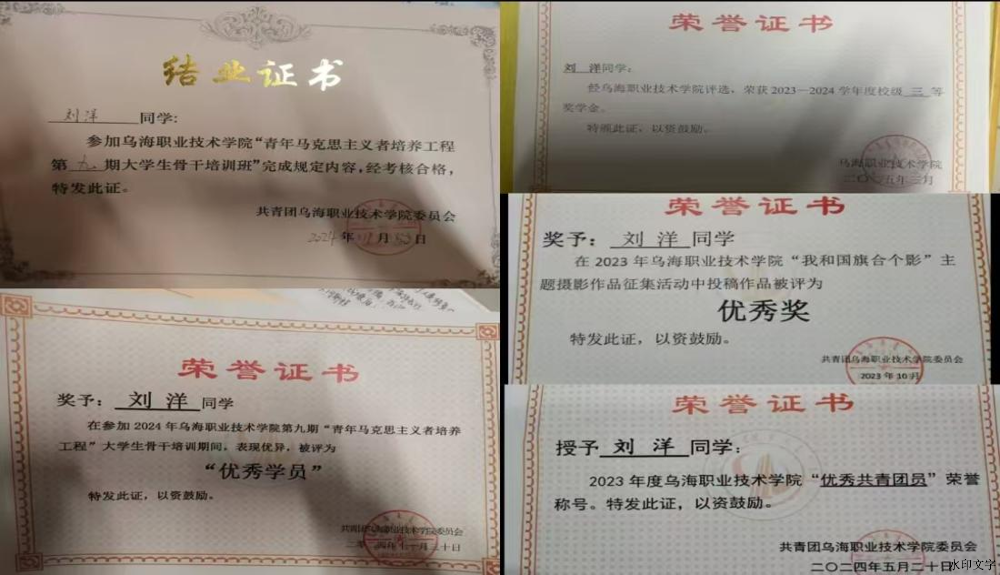 结业证书
刘洋 同学:
参加乌海职业技术学院“青年马克思主义者培养工程
第九期大学生骨干培训班”完成规定内容,经考核合格,
特发此证。
共青团乌海职业技术学院委员会
2024年 月 日
荣誉证书
奖予: 刘 洋 同学
在参加2024年乌海职业技术学院第九期“青年马克思主义者培养
工程”大学生骨干培训期间,表现优异,被评为
“优秀学员”
特发此证,以资鼓励。
共青团乌海职业技术学院委员会
二〇二四年十一月二十日
荣誉证书
刘 洋同学:
经乌海职业技术学院评选,荣获2023—2024学年度校级 三 等
奖学金。
特颁此证,以资鼓励。
乌海职业技术学院
二〇二五年三月
荣誉证书
奖予: 刘 洋 同学
在2023年乌海职业技术学院“我和国旗合个影”主
题摄影作品征集活动中投稿作品被评为
优秀奖
特发此证,以资鼓励。
共青团乌海职业技术学院委员会
2023年10月
荣誉证书
授予 刘 洋 同学:
2023年度乌海职业技术学院“优秀共青团员”荣誉
称号。特发此证,以资鼓励。
共青团乌海职业技术学院委员会
二〇二四年五月二十日
水印文字